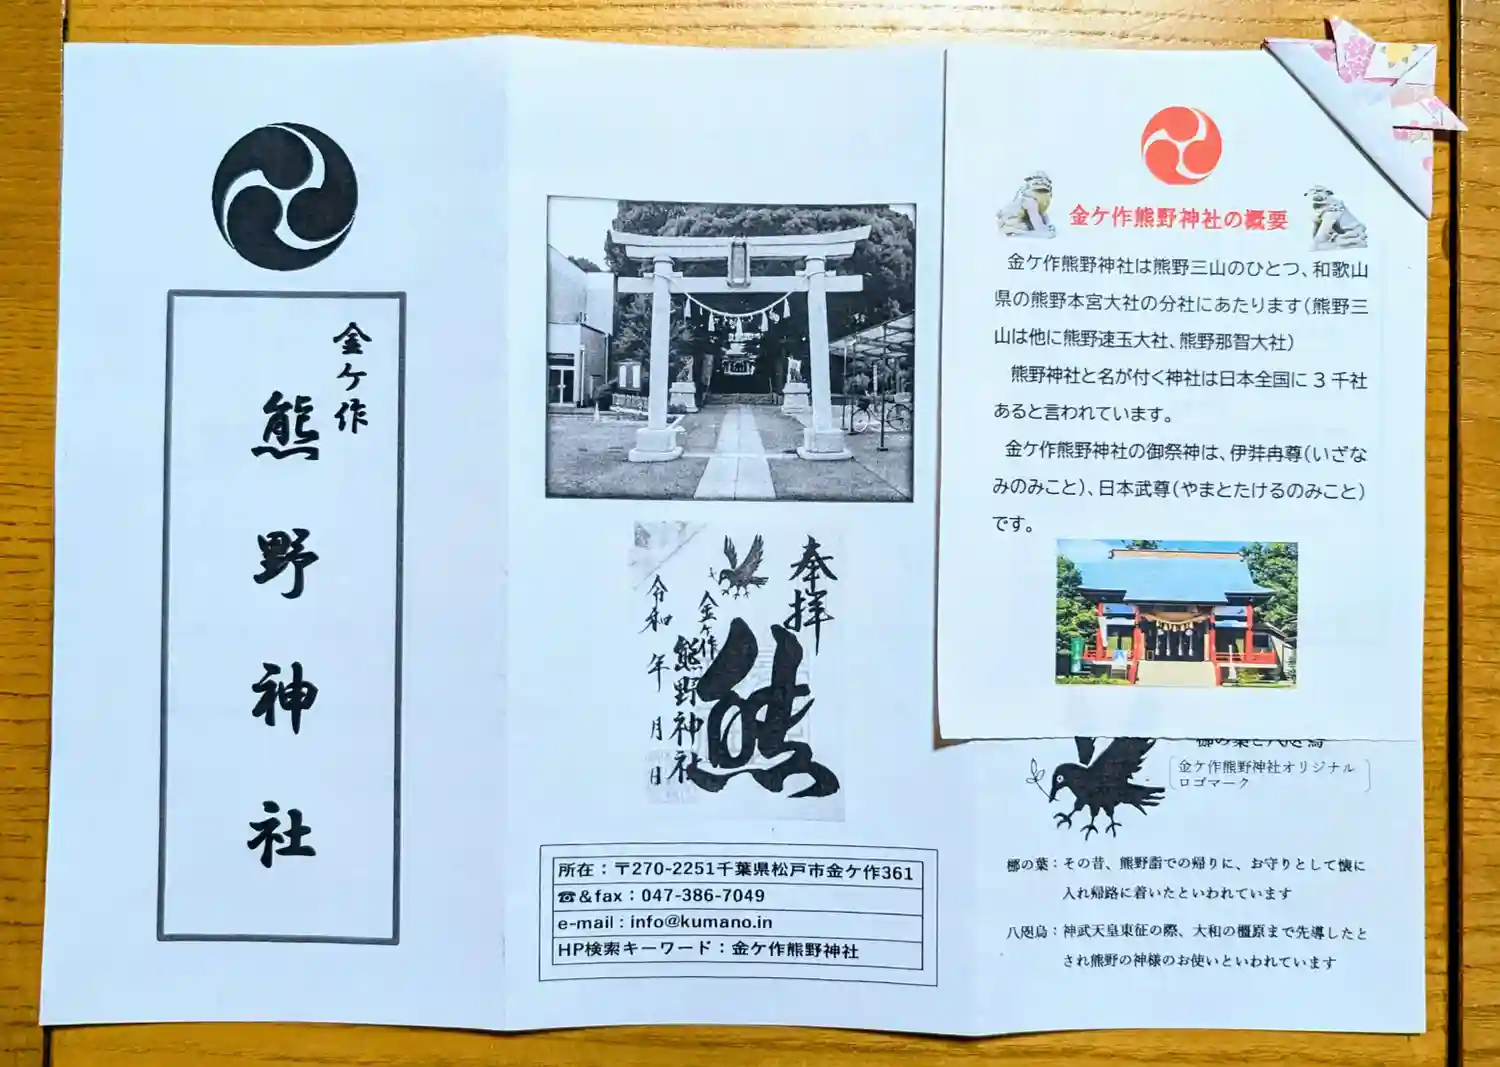 金ケ作
熊野神社
奉拝
熊
金ヶ作
熊野神社
令和 年 月 日
所在：〒270-2251千葉県松戸市金ケ作361
☎&fax：047-386-7049
e-mail : info@kumano.in
HP検索キーワード：金ケ作熊野神社
金ケ作熊野神社の概要
金ケ作熊野神社は熊野三山のひとつ、和歌山
県の熊野本宮大社の分社にあたります(熊野三
山は他に熊野速玉大社、熊野那智大社)
熊野神社と名が付く神社は日本全国に 3 千社
あると言われています。
金ケ作熊野神社の御祭神は、伊弉冉尊(いざな
みのみこと)、日本武尊(やまとたけるのみこと)
です。
金ケ作熊野神社オリジナル
ロゴマーク
梛の葉：その昔、熊野詣での帰りに、お守りとして懐に
入れ帰路に着いたといわれています
八咫烏：神武天皇東征の際、大和の橿原まで先導したと
され熊野の神様のお使いといわれています